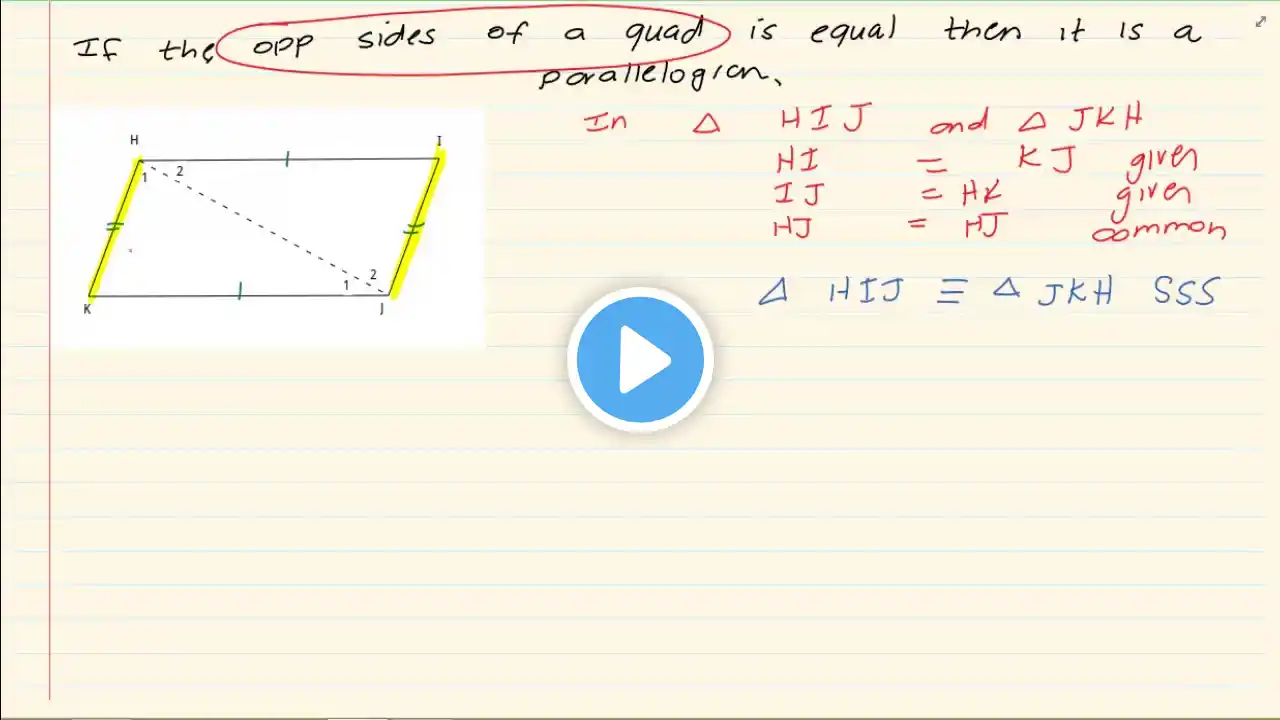 If the opp sides of a quad is equal then it is a
parallelogram.
H I
1 2
2
1
K J
In △ HIJ and △ JKH
HI = KJ given
IJ = HK given
HJ = HJ common
△ HIJ ≡ △ JKH SSS